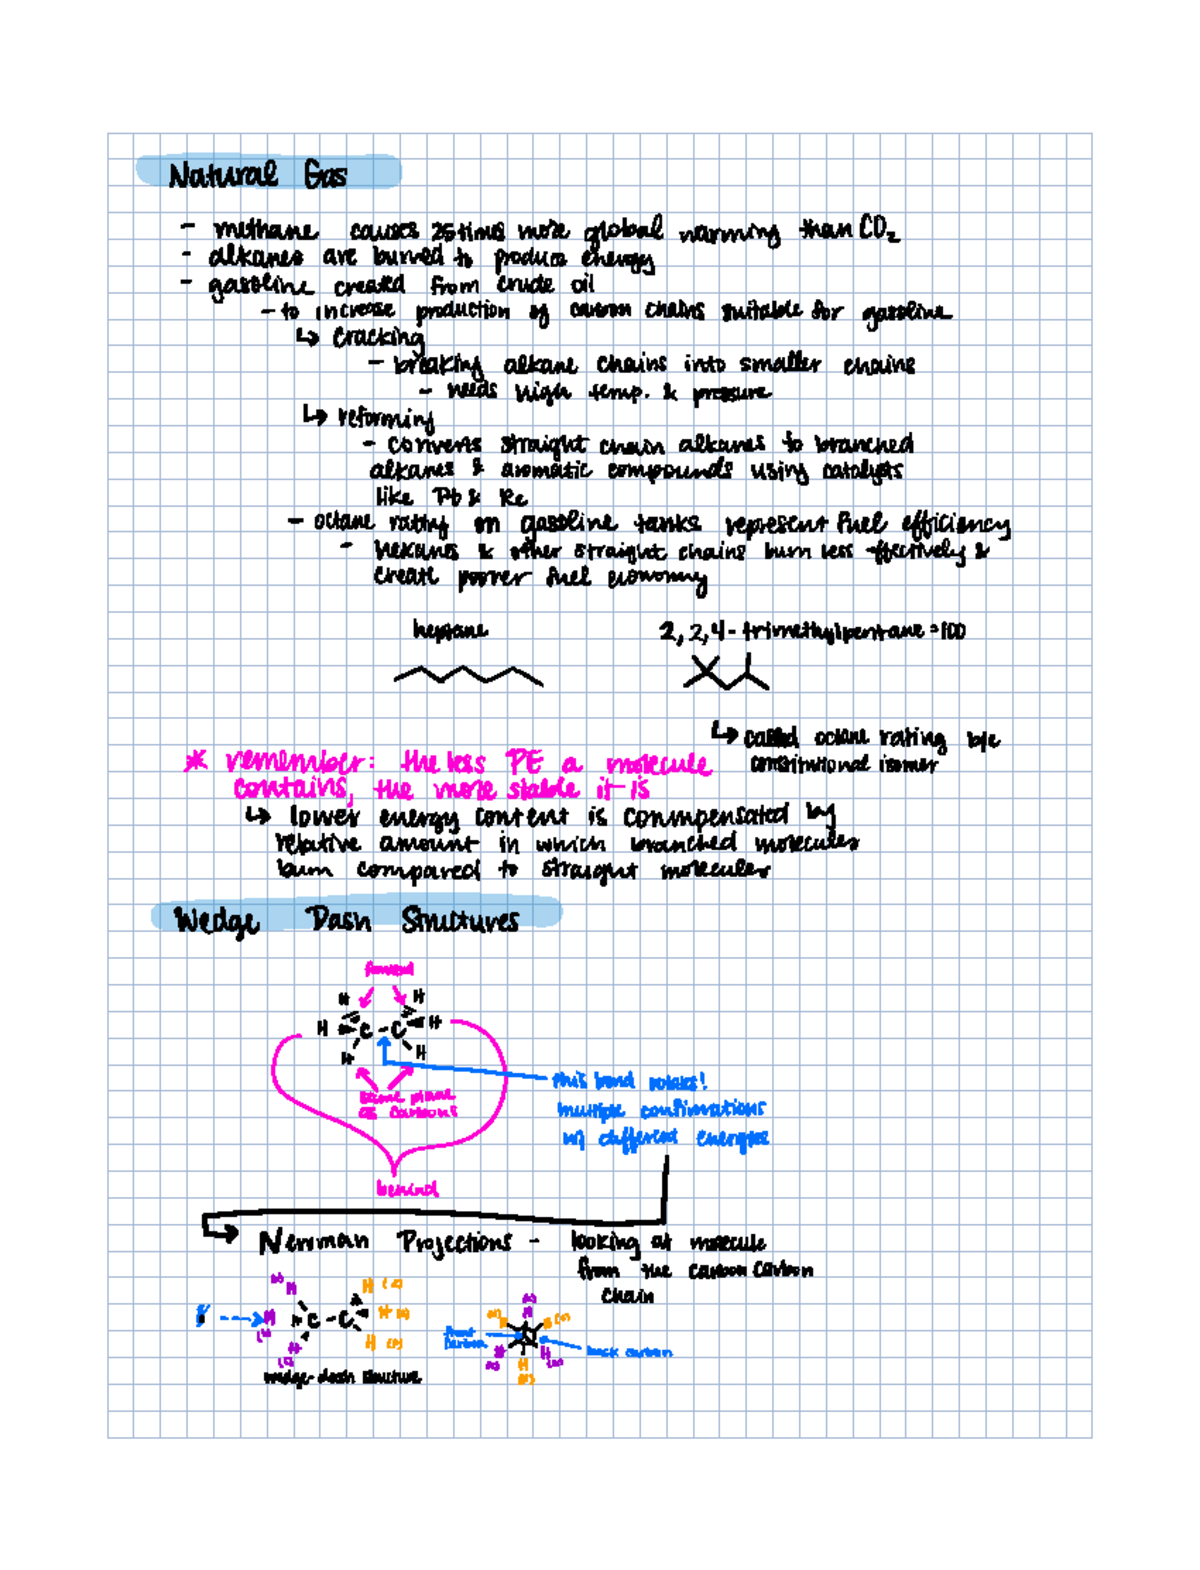 Natural Gas
- methane causes 25 times more global warming than CO₂
- alkanes are burned to produce energy
- gasoline created from crude oil
- to increase production of carbon chains suitable for gasoline
↳ cracking
- breaking alkane chains into smaller chains
- needs high temp. & pressure
↳ reforming
- converts straight chain alkanes to branched
alkanes & aromatic compounds using catalysts
like Pb & Re
- octane rating on gasoline tanks represent fuel efficiency
- hexanes & other straight chains burn less effectively &
create poorer fuel economy
heptane 2,2,4-trimethylpentane =100
↳ called octane rating b/c
constitutional isomer
* remember: the less PE a molecule
contains, the more stable it is
↳ lower energy content is compensated by
relative amount in which branched molecules
burn compared to straight molecules
Wedge Dash Structures
forward
H H
H C - C H
H H
same plane
as carbons
this bond rotates!
multiple confirmations
w/ different energies
behind
Newman Projections - looking at molecule
from the carbon carbon
chain
H H
H C - C H
H H
front
carbon
back carbon
H
H
wedge-dash structure